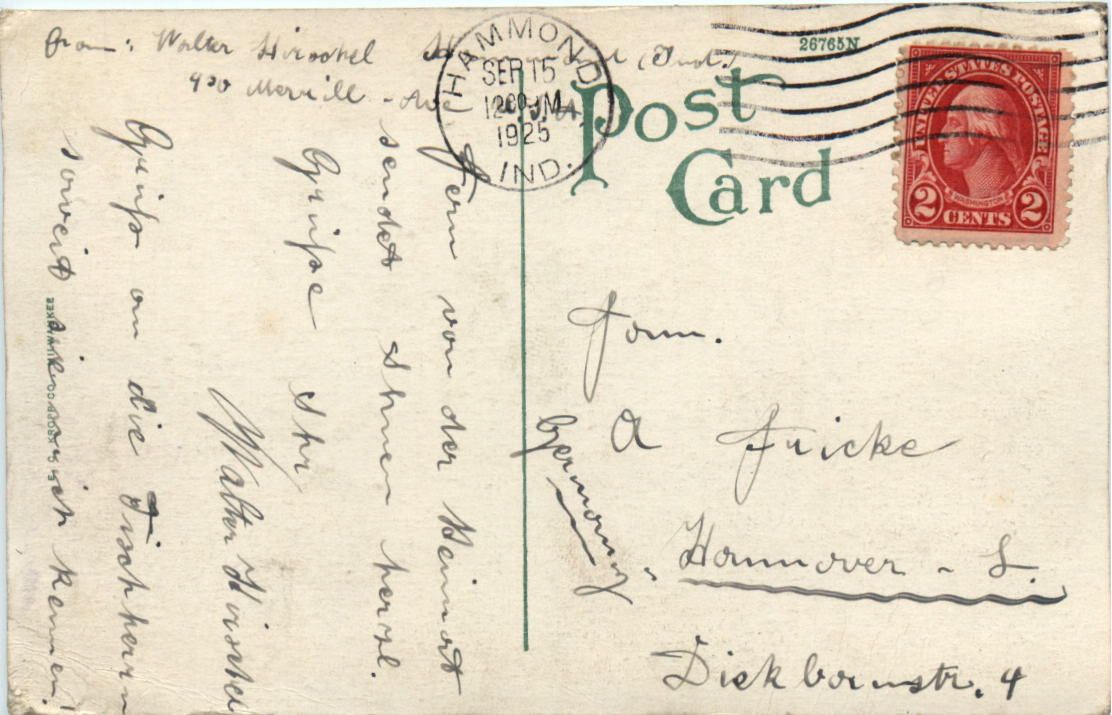 from: Walter Hirschel Hammond (Ind.)
430 Merrill - Ave.
HAMMOND
SEP 15
12 00 M
1925
IND.
26765N
Post
Card
UNITED STATES POSTAGE
WASHINGTON
2 CENTS 2
Fern von der Heimat
sendet Ihnen herzl.
Grüße Ihr
Walter Hirschel
Gruß an die Tischherrn
soweit sie mich kennen!
KROPP CO. MILWAUKEE
A Fricke
Germany
Hannover - L.
Dickbornstr. 4